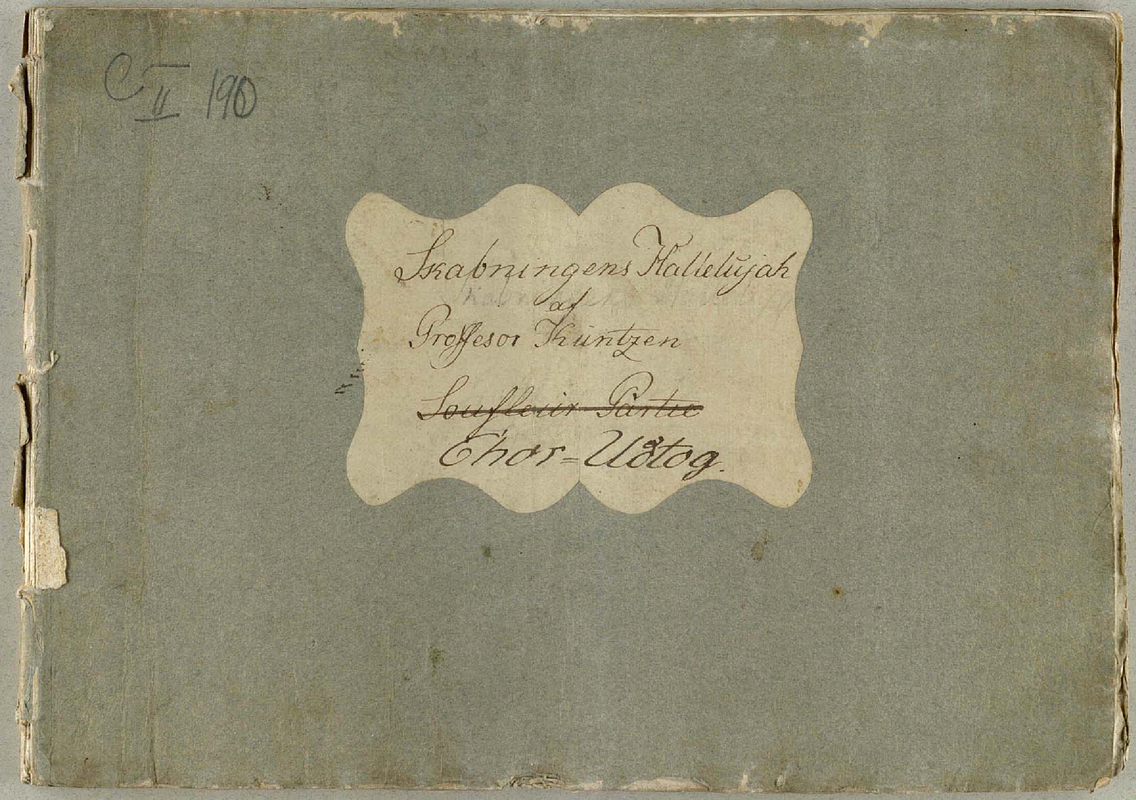 C II 190
Skabningens Hallelujah
af
Professor Kuntzen
Soufleur Partie
Chor=Udtog.